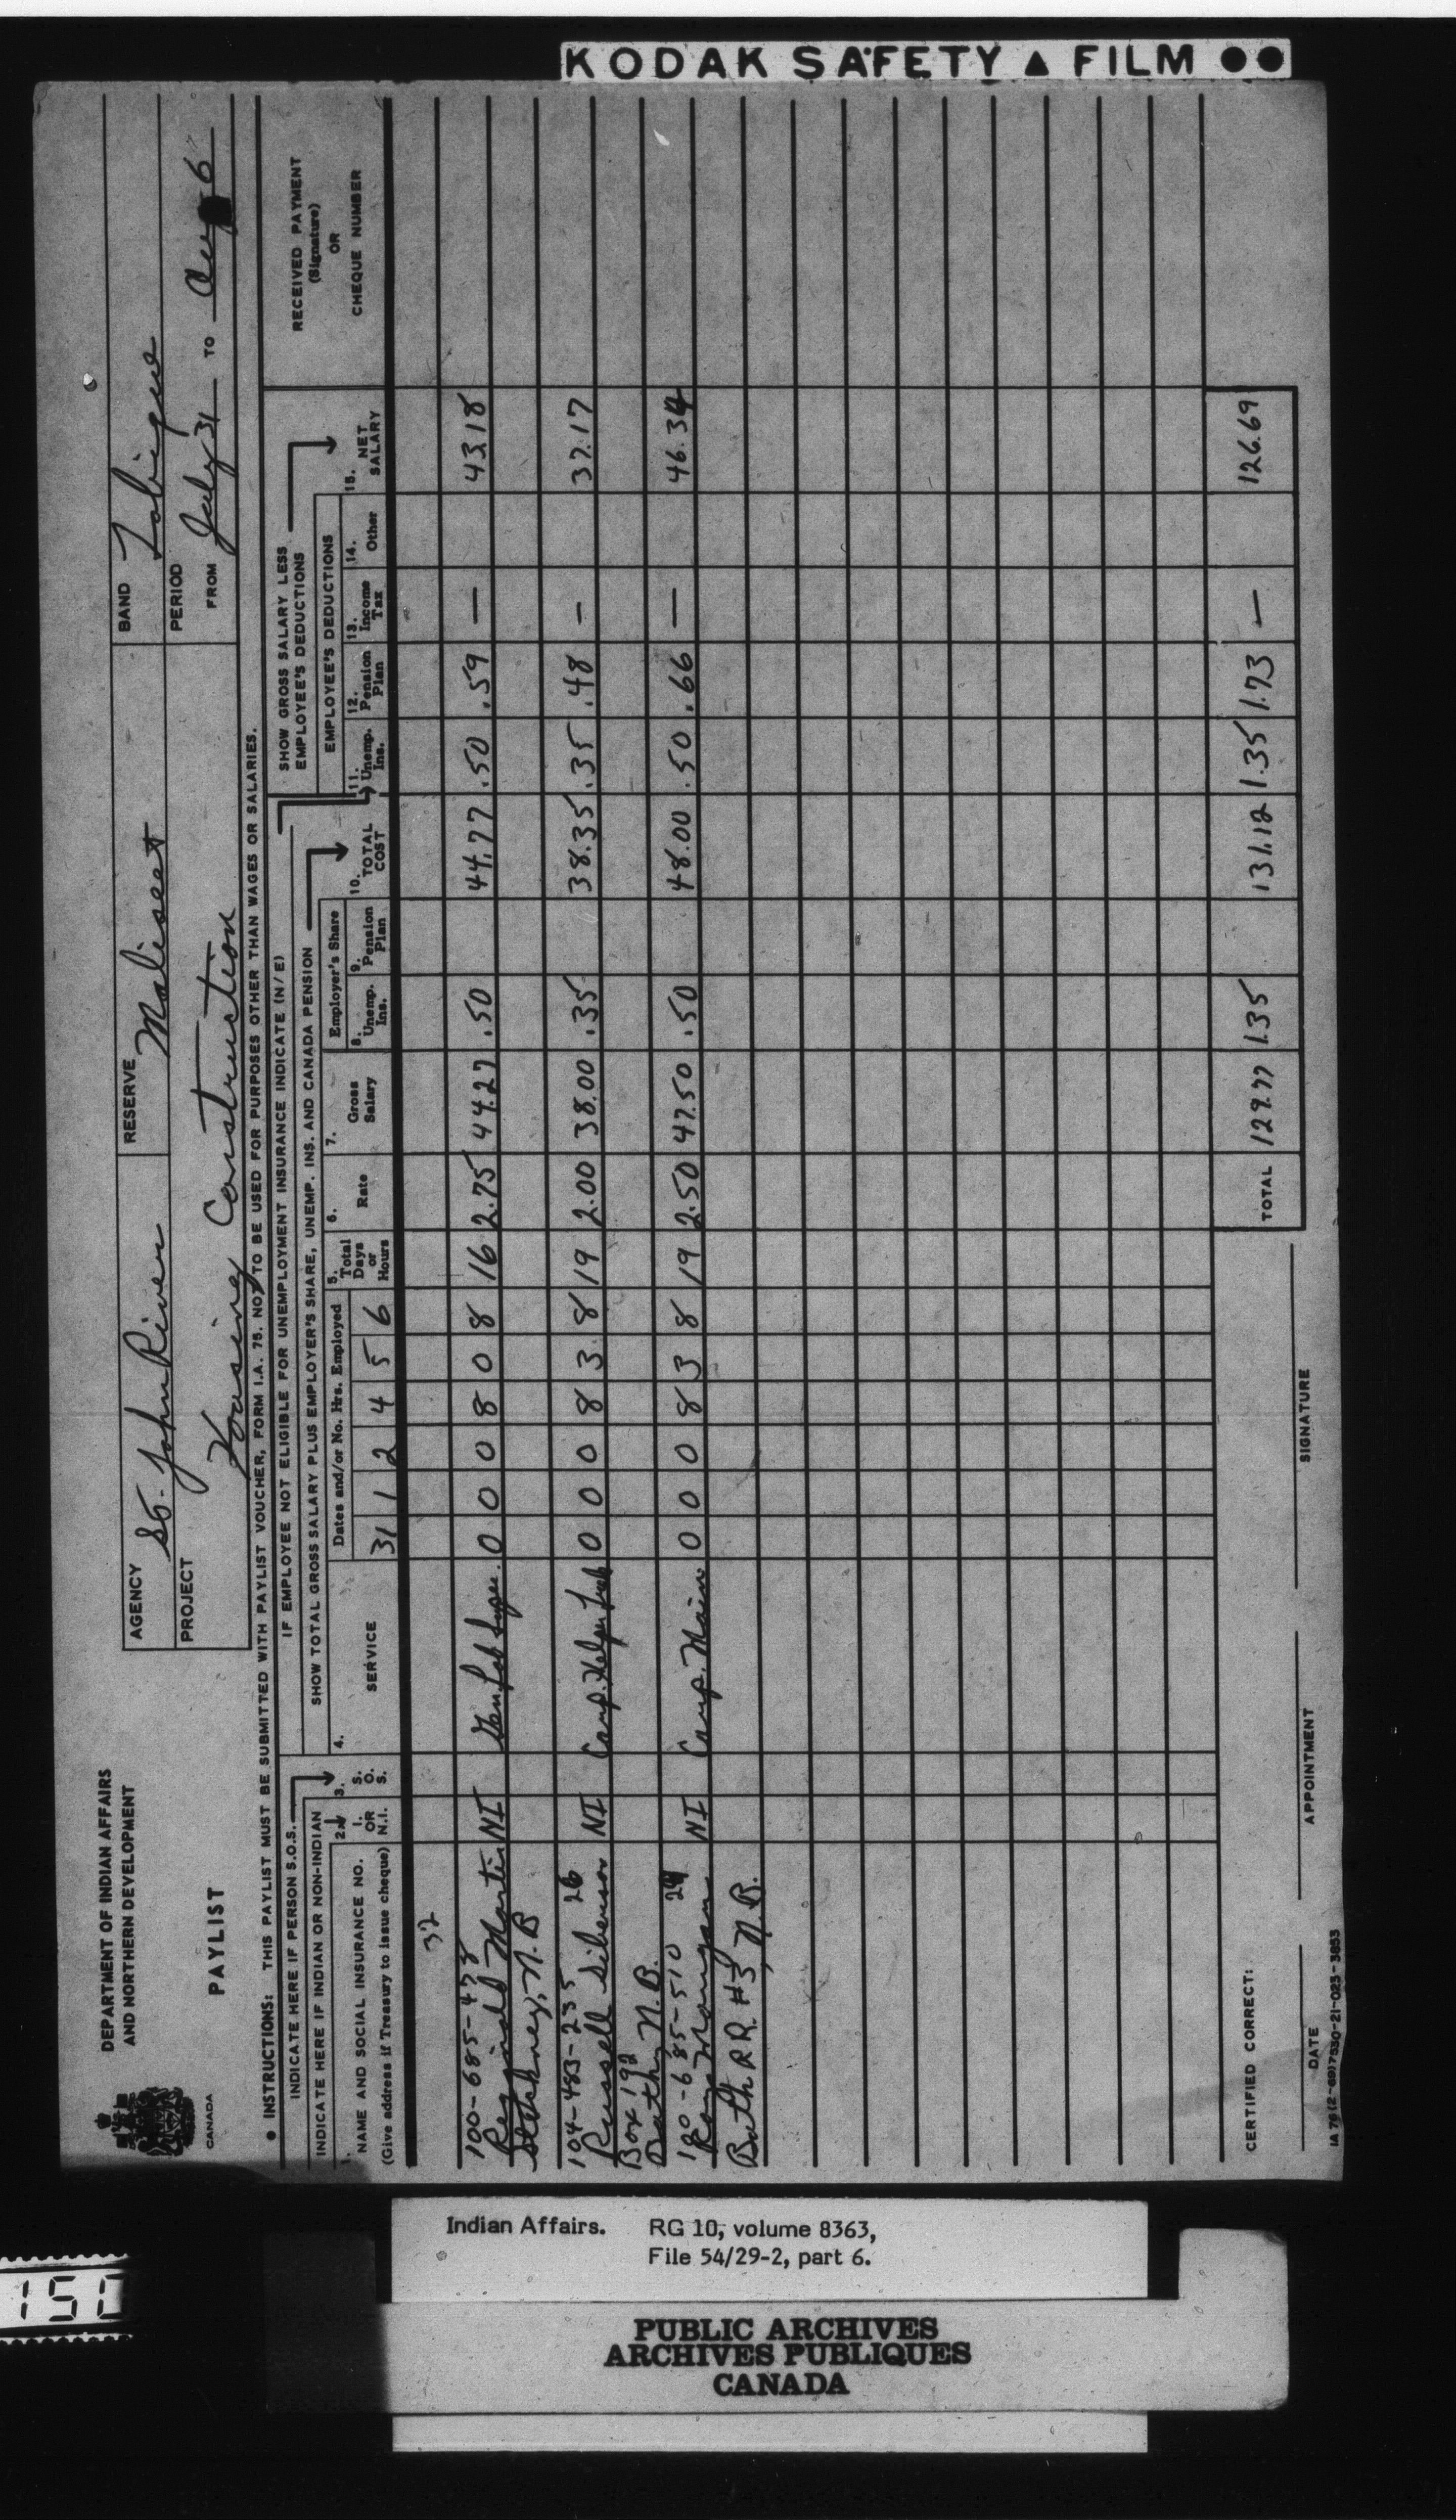 KODAK SAFETY ▲ FILM ●●
DEPARTMENT OF INDIAN AFFAIRS
AND NORTHERN DEVELOPMENT
CANADA
PAYLIST
AGENCY St. John River
RESERVE Maliseet
BAND Tobique
PROJECT Housing Construction
PERIOD
FROM July 31 TO Aug 6
● INSTRUCTIONS: THIS PAYLIST MUST BE SUBMITTED WITH PAYLIST VOUCHER, FORM I.A. 75. NOT TO BE USED FOR PURPOSES OTHER THAN WAGES OR SALARIES.
INDICATE HERE IF PERSON S.O.S.
IF EMPLOYEE NOT ELIGIBLE FOR UNEMPLOYMENT INSURANCE INDICATE (N/E)
INDICATE HERE IF INDIAN OR NON-INDIAN
SHOW TOTAL GROSS SALARY PLUS EMPLOYER'S SHARE, UNEMP. INS. AND CANADA PENSION
SHOW GROSS SALARY LESS
EMPLOYEE'S DEDUCTIONS
1. NAME AND SOCIAL INSURANCE NO.
(Give address if Treasury to issue cheque)
2. I. OR N.I.
3. S. O. S.
4. SERVICE
Dates and/or No. Hrs. Employed
31 1 2 4 5 6
5. Total Days or Hours
6. Rate
7. Gross Salary
Employer's Share
8. Unemp. Ins.
9. Pension Plan
10. TOTAL COST
EMPLOYEE'S DEDUCTIONS
11. Unemp. Ins.
12. Pension Plan
13. Income Tax
14. Other
15. NET SALARY
RECEIVED PAYMENT
(Signature)
OR
CHEQUE NUMBER
32
100-685-438
Reginald Martin NI Gen Lab Super. 0 0 0 8 0 8 16 2.75 44.27 .50 44.77 .50 .59 — 43.18
N.B
104-483-235 26
Russell NI Camp. Helper 0 0 0 8 3 8 19 2.00 38.00 .35 38.35 .35 .48 — 37.17
Box 192
Bath, N.B.
100-685-510 24
NI Camp. Main 0 0 0 8 3 8 19 2.50 47.50 .50 48.00 .50 .66 — 46.34
Bath RR #3, N.B.
TOTAL 129.77 1.35 131.12 1.35 1.73 — 126.69
CERTIFIED CORRECT:
DATE
APPOINTMENT
SIGNATURE
IA 76 (2-69) 7530-21-023-3853
Indian Affairs. RG 10, volume 8363,
File 54/29-2, part 6.
PUBLIC ARCHIVES
ARCHIVES PUBLIQUES
CANADA